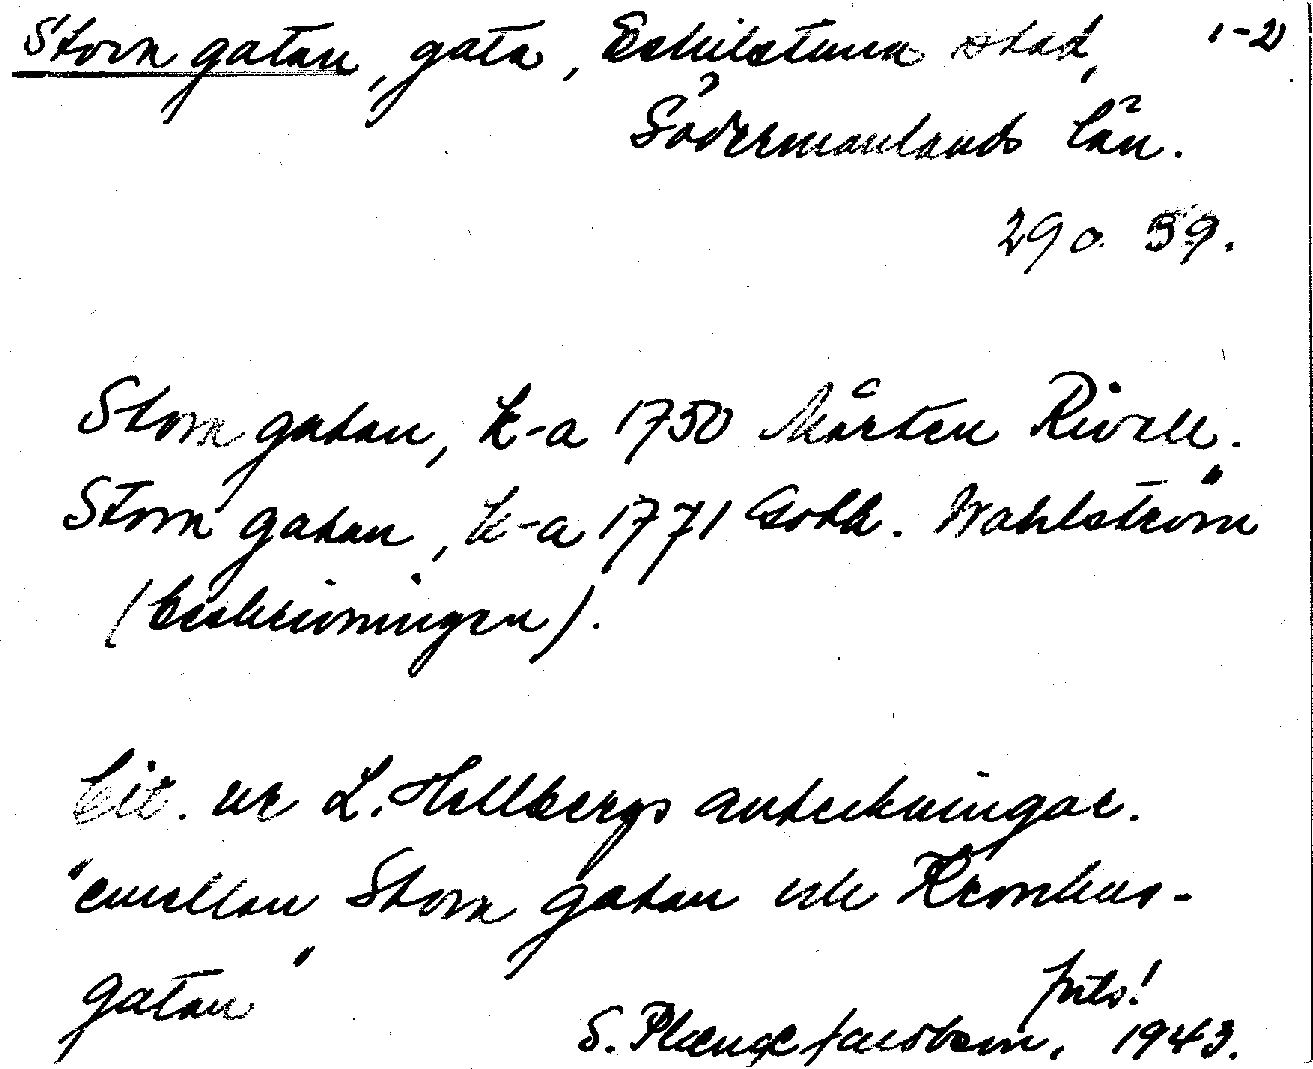 Stora gatan, gata, Eskilstuna stad, 1-2
Södermanlands län.
290 59.
Stora gatan, k-a 1750 Mårten Rivell.
Stora gatan, k-a 1771 Gotth. Wahlström
(beskrivningen).
Cit. ur L. Hellbergs anteckningar.
"emellan Stora gatan och Kronhus-
gatan"
forts!
S. Plænge Jacobson, 1943.